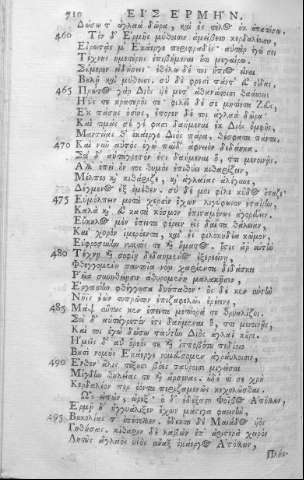 710 ΕΙΣ ΕΡΜΗΝ.
Δώσω τ' ἀγλαὰ δῶρα, καὶ ἐς τέλος οὐκ ἀπατήσω.
460 Τὸν δ' Ἑρμῆς μύθοισιν ἀμείβετο κερδαλέοισιν,
Εἰρωτᾷς μ' Ἑκάεργε περιφραδές· αὐτὰρ ἐγώ σοι
Τέχνης ἡμετέρης ἐπιβήμεναι οὔ τι μεγαίρω.
Σήμερον εἰδήσεις· ἐθέλω δέ τοι ἤπιος εἶναι
Βουλῇ καὶ μύθοισι· σὺ δὲ φρεσὶ πάντ' εὖ οἶδας,
465 Πρῶτος γὰρ Διὸς υἱὲ μετ' ἀθανάτοισι θαάσσεις
Ἠΰς τε κρατερός τε· φιλεῖ δέ σε μητίετα Ζεὺς,
Ἐκ πάσης ὁσίης, ἔπορεν δέ τοι ἀγλαὰ δῶρα·
Καὶ τιμὰς σέ γέ φασι δαήμεναι ἐκ Διὸς ὀμφῆς,
Μαντείας θ' ἑκάεργε Διὸς πάρα, θέσφατα πάντα.
470 Καὶ νῦν αὐτὸς ἐγὼ παῖδ' ἀφνειὸν δεδάηκα.
Σοὶ δ' αὐτάγρετόν ἐστι δαήμεναι ὅ, ττι μενοινᾷς.
Ἀλλ' ἐπεὶ οὖν τοι θυμὸς ἐπιθύει κιθαρίζειν,
Μέλπεο καὶ κιθάριζε, καὶ ἀγλαΐας ἀλέγυνε,
Δέγμενος ἐξ ἐμέθεν· σὺ δέ μοι φίλε κῦδος ὄπαζε·
475 Εὐμόλπει μετὰ χερσὶν ἔχων λιγύφωνον ἑταίρην,
Καλὰ καὶ εὖ κατὰ κόσμον ἐπισταμένως ἀγορεύειν.
Εὔκηλος μὲν ἔπειτα φέρειν εἰς δαῖτα θάλειαν,
Καὶ χορὸν ἱμερόεντα, καὶ ἐς φιλοκυδέα κῶμον,
Εὐφροσύνην νυκτός τε καὶ ἤματος. ὅστις ἂν αὐτὴν
480 Τέχνῃ καὶ σοφίῃ δεδαημένος ἐξερεείνῃ,
Φθεγγομένη παντοῖα νόῳ χαρίεντα διδάσκει
Ῥεῖα συνηθείῃσιν ἀθυρομένη μαλακῇσιν,
Ἐργασίην φεύγουσα δυήπαθον· ὃς δέ κεν αὐτὴν
Νῆϊς ἐὼν τοπρῶτον ἐπιζαφελῶς ἐρεείνῃ,
485 Μὰψ αὔτως κεν ἔπειτα μετήορά τε θρυλλίζοι.
Σοὶ δ' αὐτάγρετόν ἐστι δαήμεναι ὅ, ττι μενοινᾷς,
Καί τοι ἐγὼ δώσω ταύτην Διὸς ἀγλαὲ κοῦρε.
Ἡμεῖς δ' αὖτ' ὄρεός τε καὶ ἱπποβότου πεδίοιο
Βουσὶ νομοὺς Ἑκάεργε νομεύσομεν ἀγραύλοισιν,
490 Ἔνθεν ἅλις τέξουσι βόες ταύροισι μιγεῖσαι
Μίγδην θηλείας τε καὶ ἄρσενας. οὐδέ τί σε χρὴ
Κερδαλέον περ ἐόντα περιζαμενῶς κεχολῶσθαι.
Ὣς εἰπὼν, ὤρεξ'· ὁ δ' ἐδέξατο Φοῖβος Ἀπόλλων,
Ἑρμῇ δ' ἐγγυάλιξεν ἔχων μάστιγα φαεινὴν,
495 Βουκολίας τ' ἐπέτελλεν· ἔδεκτο δὲ Μαιάδος υἱὸς
Γηθήσας. κίθαριν δὲ λαβὼν ἐπ' ἀριστερὰ χειρὸς
Λητοῦς ἀγλαὸς υἱὸς ἄναξ ἑκάεργος Ἀπόλλων,